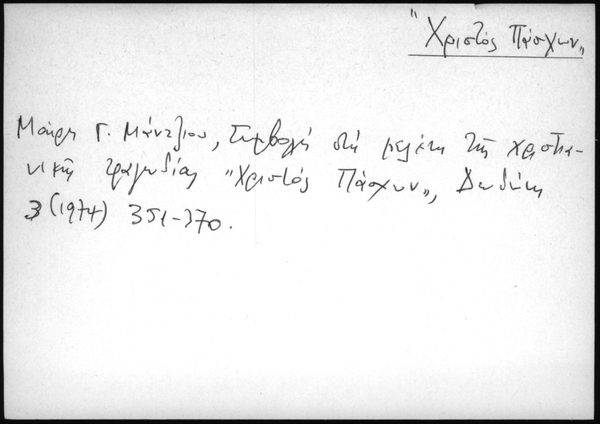 "Χριστός Πάσχων„
Μαίρη Γ. Μάντζιου, Συμβολή στη μελέτη της χριστια-
νικής τραγωδίας "Χριστός Πάσχων„, Δωδώνη
3 (1974) 351-370.